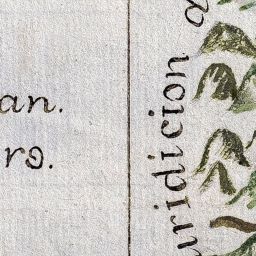 an.
ro.
uridicion